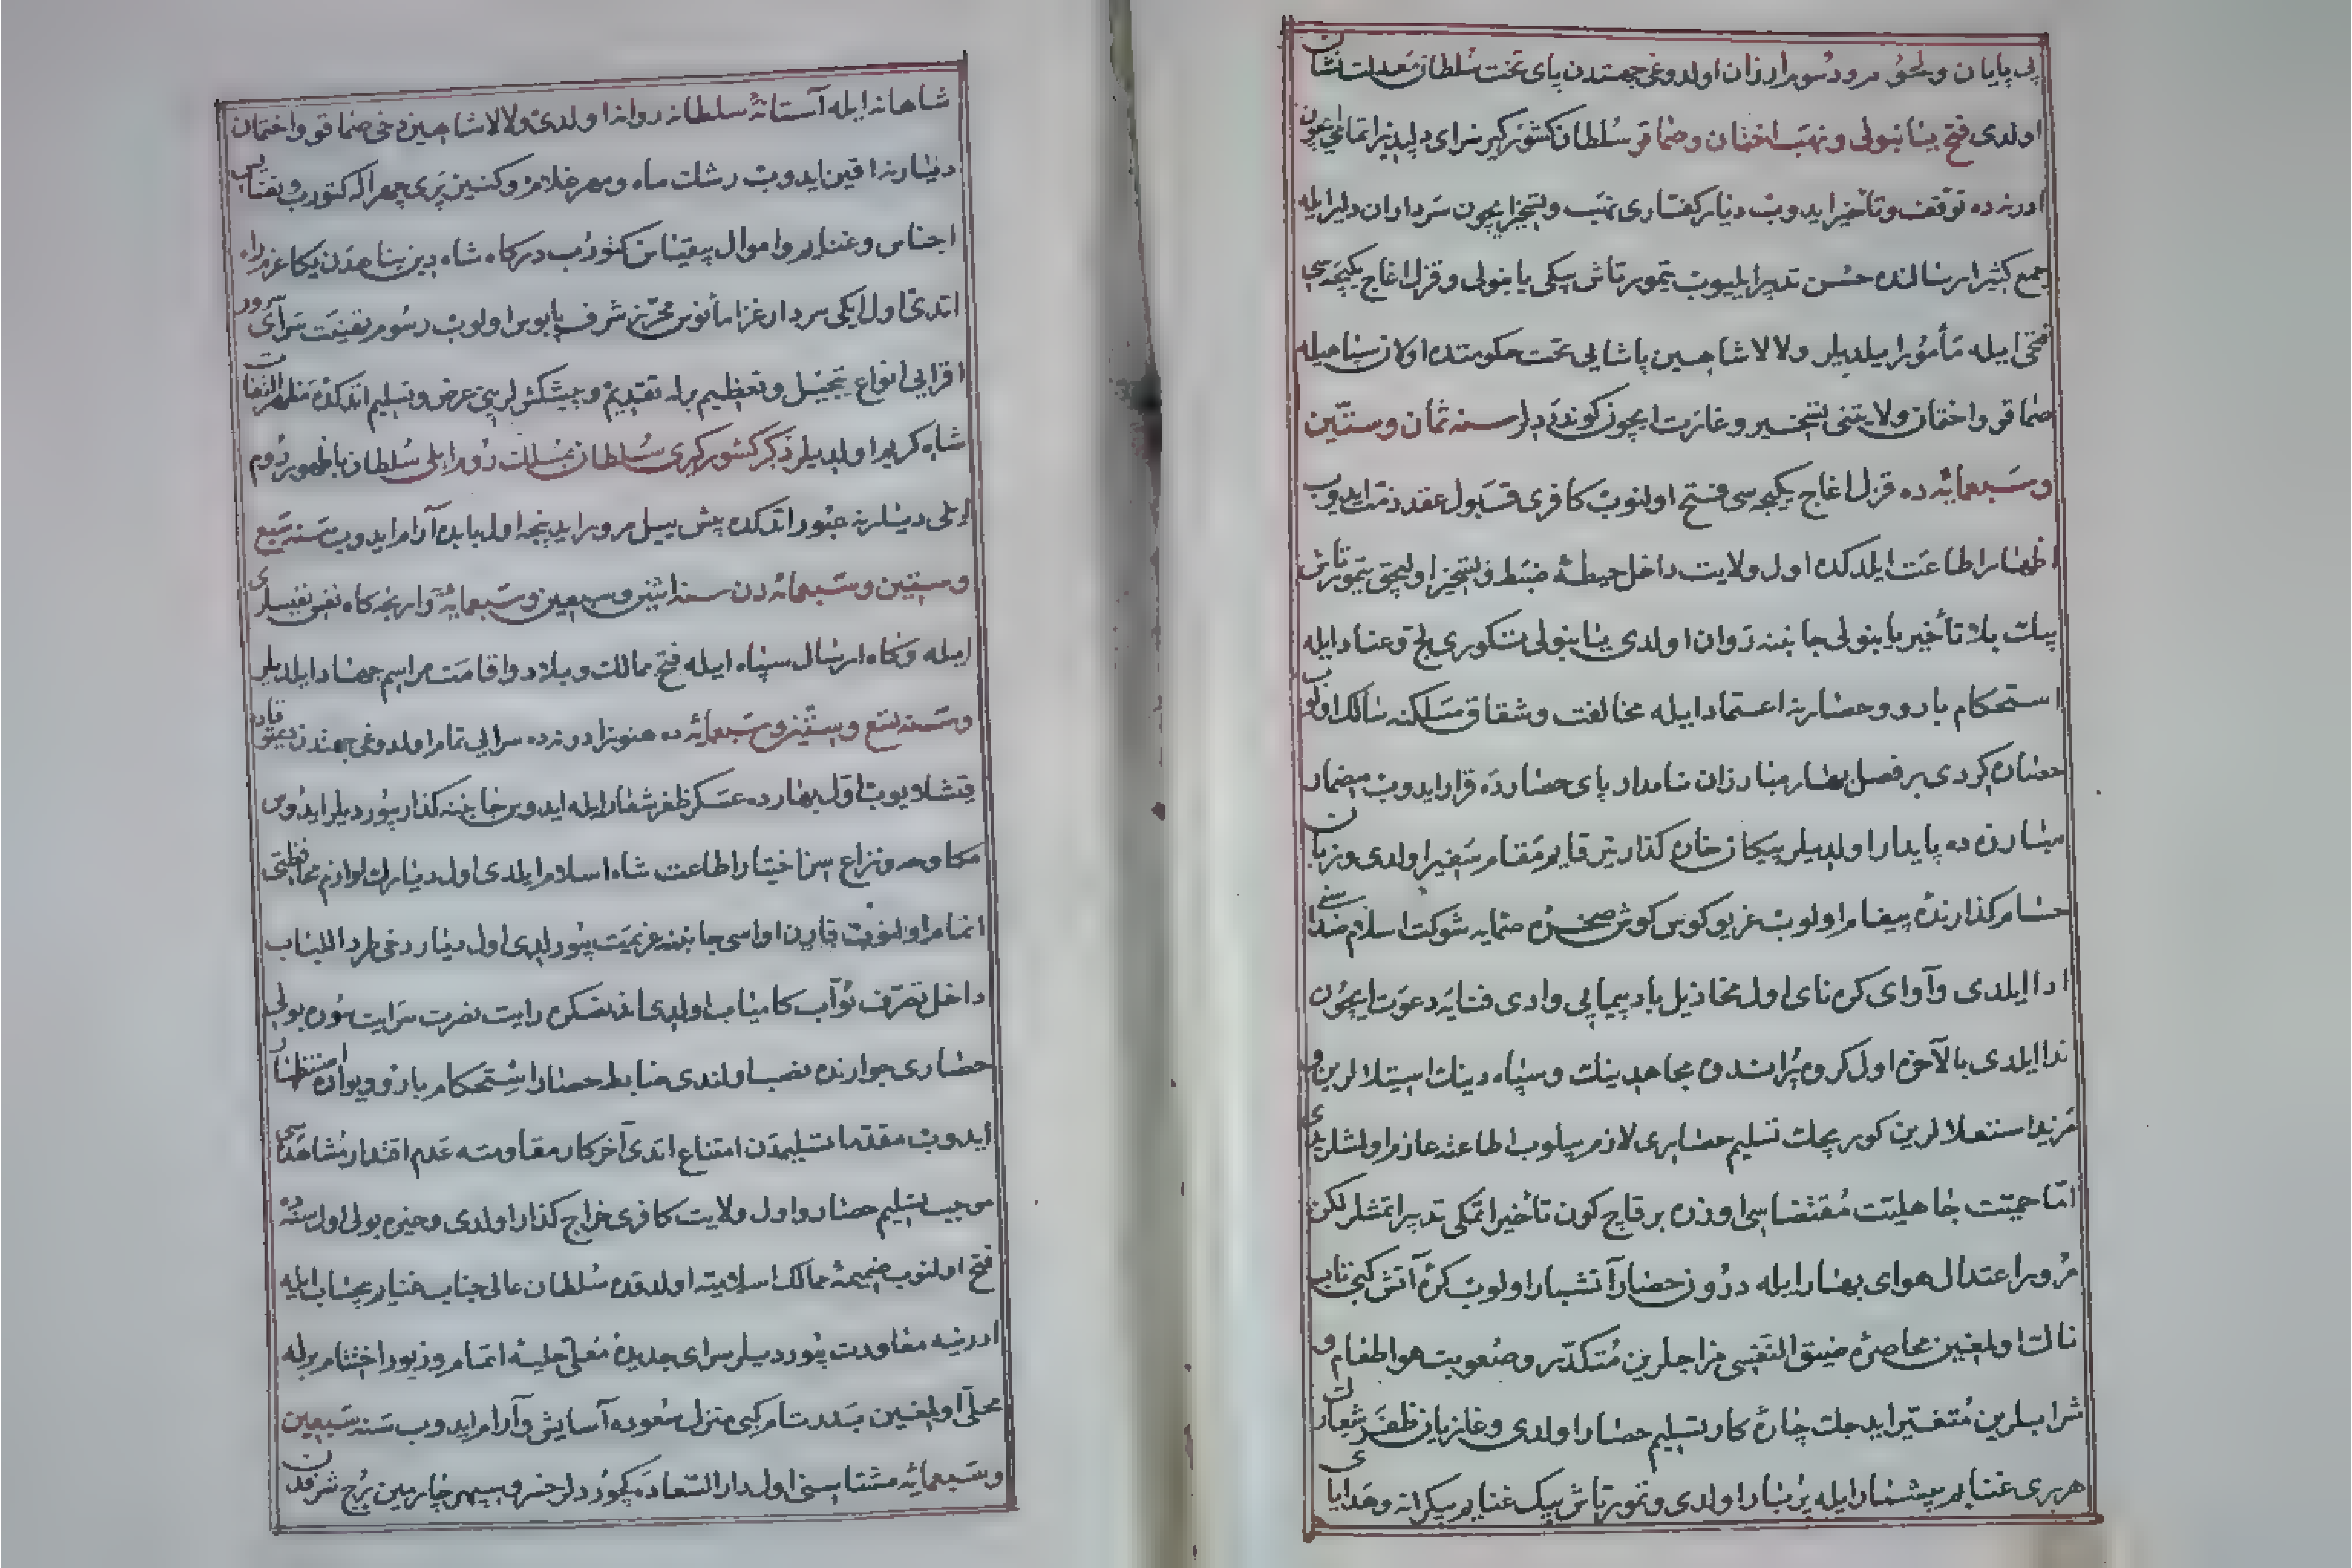 بی پایان و لحوق مرود سومرارزان اولدوغی جهتدن پای تخت سلطان معدلت نشان
اولدی فتح ینابنولی و نهب اختمان وصماقو سلطان کشور کیر سرای دلپذیر اتمامی ایچون
ادرنه ده توقف و تأخیر ایدوب دیار کفتاری نهب و تسخیر ایچون سرداران دلیر ایله
جمع کثیر ارسالنده حسن تدبیر ایلیوب تیمور تاش بیکی یانبولی و قزل اغاج یکیجه سی
فتحی ایله مأمور ایلدیلر و لالا شاهین پاشایی تحت حکومتنده اولان سپاهیله
صماقو و اختمان ولایتنی تسخیر و غارت ایچون کوندردیلر سنه ثمان و ستین
و سبعمایه ده قزل اغاج یکیجه سی فتح اولنوب کافری قبول عقد ذمت ایدوب
اظهار اطاعت ایلدکده اول ولایت داخل حیطهٔ ضبط و تسخیر اولیجق تیمورتاش
بیک بلا تأخیر یانبولی جانبنه روان اولدی ینابنولی تکوری لج و عناد ایله
استحکام بارو و حصارینه اعتماد ایله مخالفت و شقاق مسلکنه سالک اولوب
حصاره کردی بر فصل بهار مبارزان نامدار پای حصارده قرار ایدوب مضمار
مبارزه ده پایدار اولدیلر پیکان خاره کذار تیر قایم مقام سفیر اولدی و زبان
حسام کذارنده پیغام اولوب غریو کوس کوش صخره صمایه شوکت اسلام صداسنی
ادا ایلدی و آوای کره نای اول مخاذیل باد پیمایی وادی فنایه دعوت ایچون
ندا ایلدی بالآخره اول کروه پر اندوه مجاهدینک و سپاه دینک استیلا لرین و
مزید استعلا لرین کوریجک تسلیم حصاری لازم بیلوب اطاعته عازم اولشلریدی
اما حمیت جاهلیت مقتضاسی اوزره بر قاچ کون تأخیر اتمکی تدبیر اتمشلر لکن
مرور اعتدال هوای بهار ایله درون حصار آتشبار اولوب کرهٔ آتش کبی تاب
ناک اولمغین محاصرهٔ ضیق النفسی مزاجلرین متکدر و صعوبت هوا طعام و
شرابلرین متغیر ایدجک چارهٔ کار تسلیم حصار اولدی و غازیان ظفر شعارک
هر بری غنایم بیشمار ایله پر بار اولدی و تیمورتاش بیک غنایم بیکرانه و هدایای
شاهانه ایله آستانهٔ سلطانه روانه اولدی و لالا شاهین دخی صماقو و اختمان
دیارینه اقین ایدوب رشک ماه و مهر غلام و کنیز پری چهر الہ کتورب و نفایس
اجناس و غنایم و اموال بیقیاس کتورب درکاه شاه دین پناهدن یکا عزم راه
اتدی اول ایکی سردار غزا مأنوس محرز شرف پابوس اولوب رسوم نفیقت سرای سرور
افزایی انواع تبجیل و تعظیم برله تقدیم و پیشکش لرینی عرض و تسلیم اتدکده مظهر التفات
شاه کریم اولدیلر ذکر کشور کیری سلطان بمسالک روم ایلی سلطان باظهور روم
ایلی دیارینه عبور اتدکده بیش ییل مرور ایدینجه اول یایده آرام ایدوب سنه سبع
و ستین و سبعمائه دن سنه اثنین و سبعین و سبعمایه تواریخنه کاه نفس نفیسلری
ایله و کاه ارسال سپاه ایله فتح ممالک و بلاد و اقامت مراسم جهاد ایلدیلر
و سنه تسع و ستین و سبعمائه ده هنوز ادرنه ده سرایی تمام اولدوغی جهتدن دیمتوقاده
قشلایوب اول بهارده عسکر ظفر شعار ایله ایدوس جانبنه کذار بیوردیلر ایدوس
مکاوحه و نزاع سز اختیار اطاعت شاه اسلام ایلدی اول دیارک لوازم محافظتی
اتمام اولنوب قارین اواسی جانبنه عزیمت بیورلدی اول دیار دخی طرد اللباب
داخل تصرف نوآب کامیاب اولدی اندنصکره رایت نصرت سرایت سوره بولی
حصاری جوارنده نصب اولندی ضابط حصار استحکام بارو و دیواره استظهار
ایدوب مقدما تسلیمدن امتناع اتدی آخر کار مقاومته عدم اقتدار مشاهده سی
موجب تسلیم حصار و اول ولایت کافری خراج کذار اولدی و حیره بولی اول سنه ده
فتح اولنوب ضمیمهٔ ممالک اسلامیه اولدقده سلطان عالی جناب غنایم بیحساب ایله
ادرنیه معاودت بیوردیلر سرای جدیده معلی حلیهٔ اتمام و زیور اختتام برله
محلی اولمغین بدر تام کبی منزل سعوده آسایش و آرام ایدوب سنه سبعین
و سبعمایه مشتاسنی اول دار السعاده یکوردیلر خسرو سپهر چارمین برج شرفدن